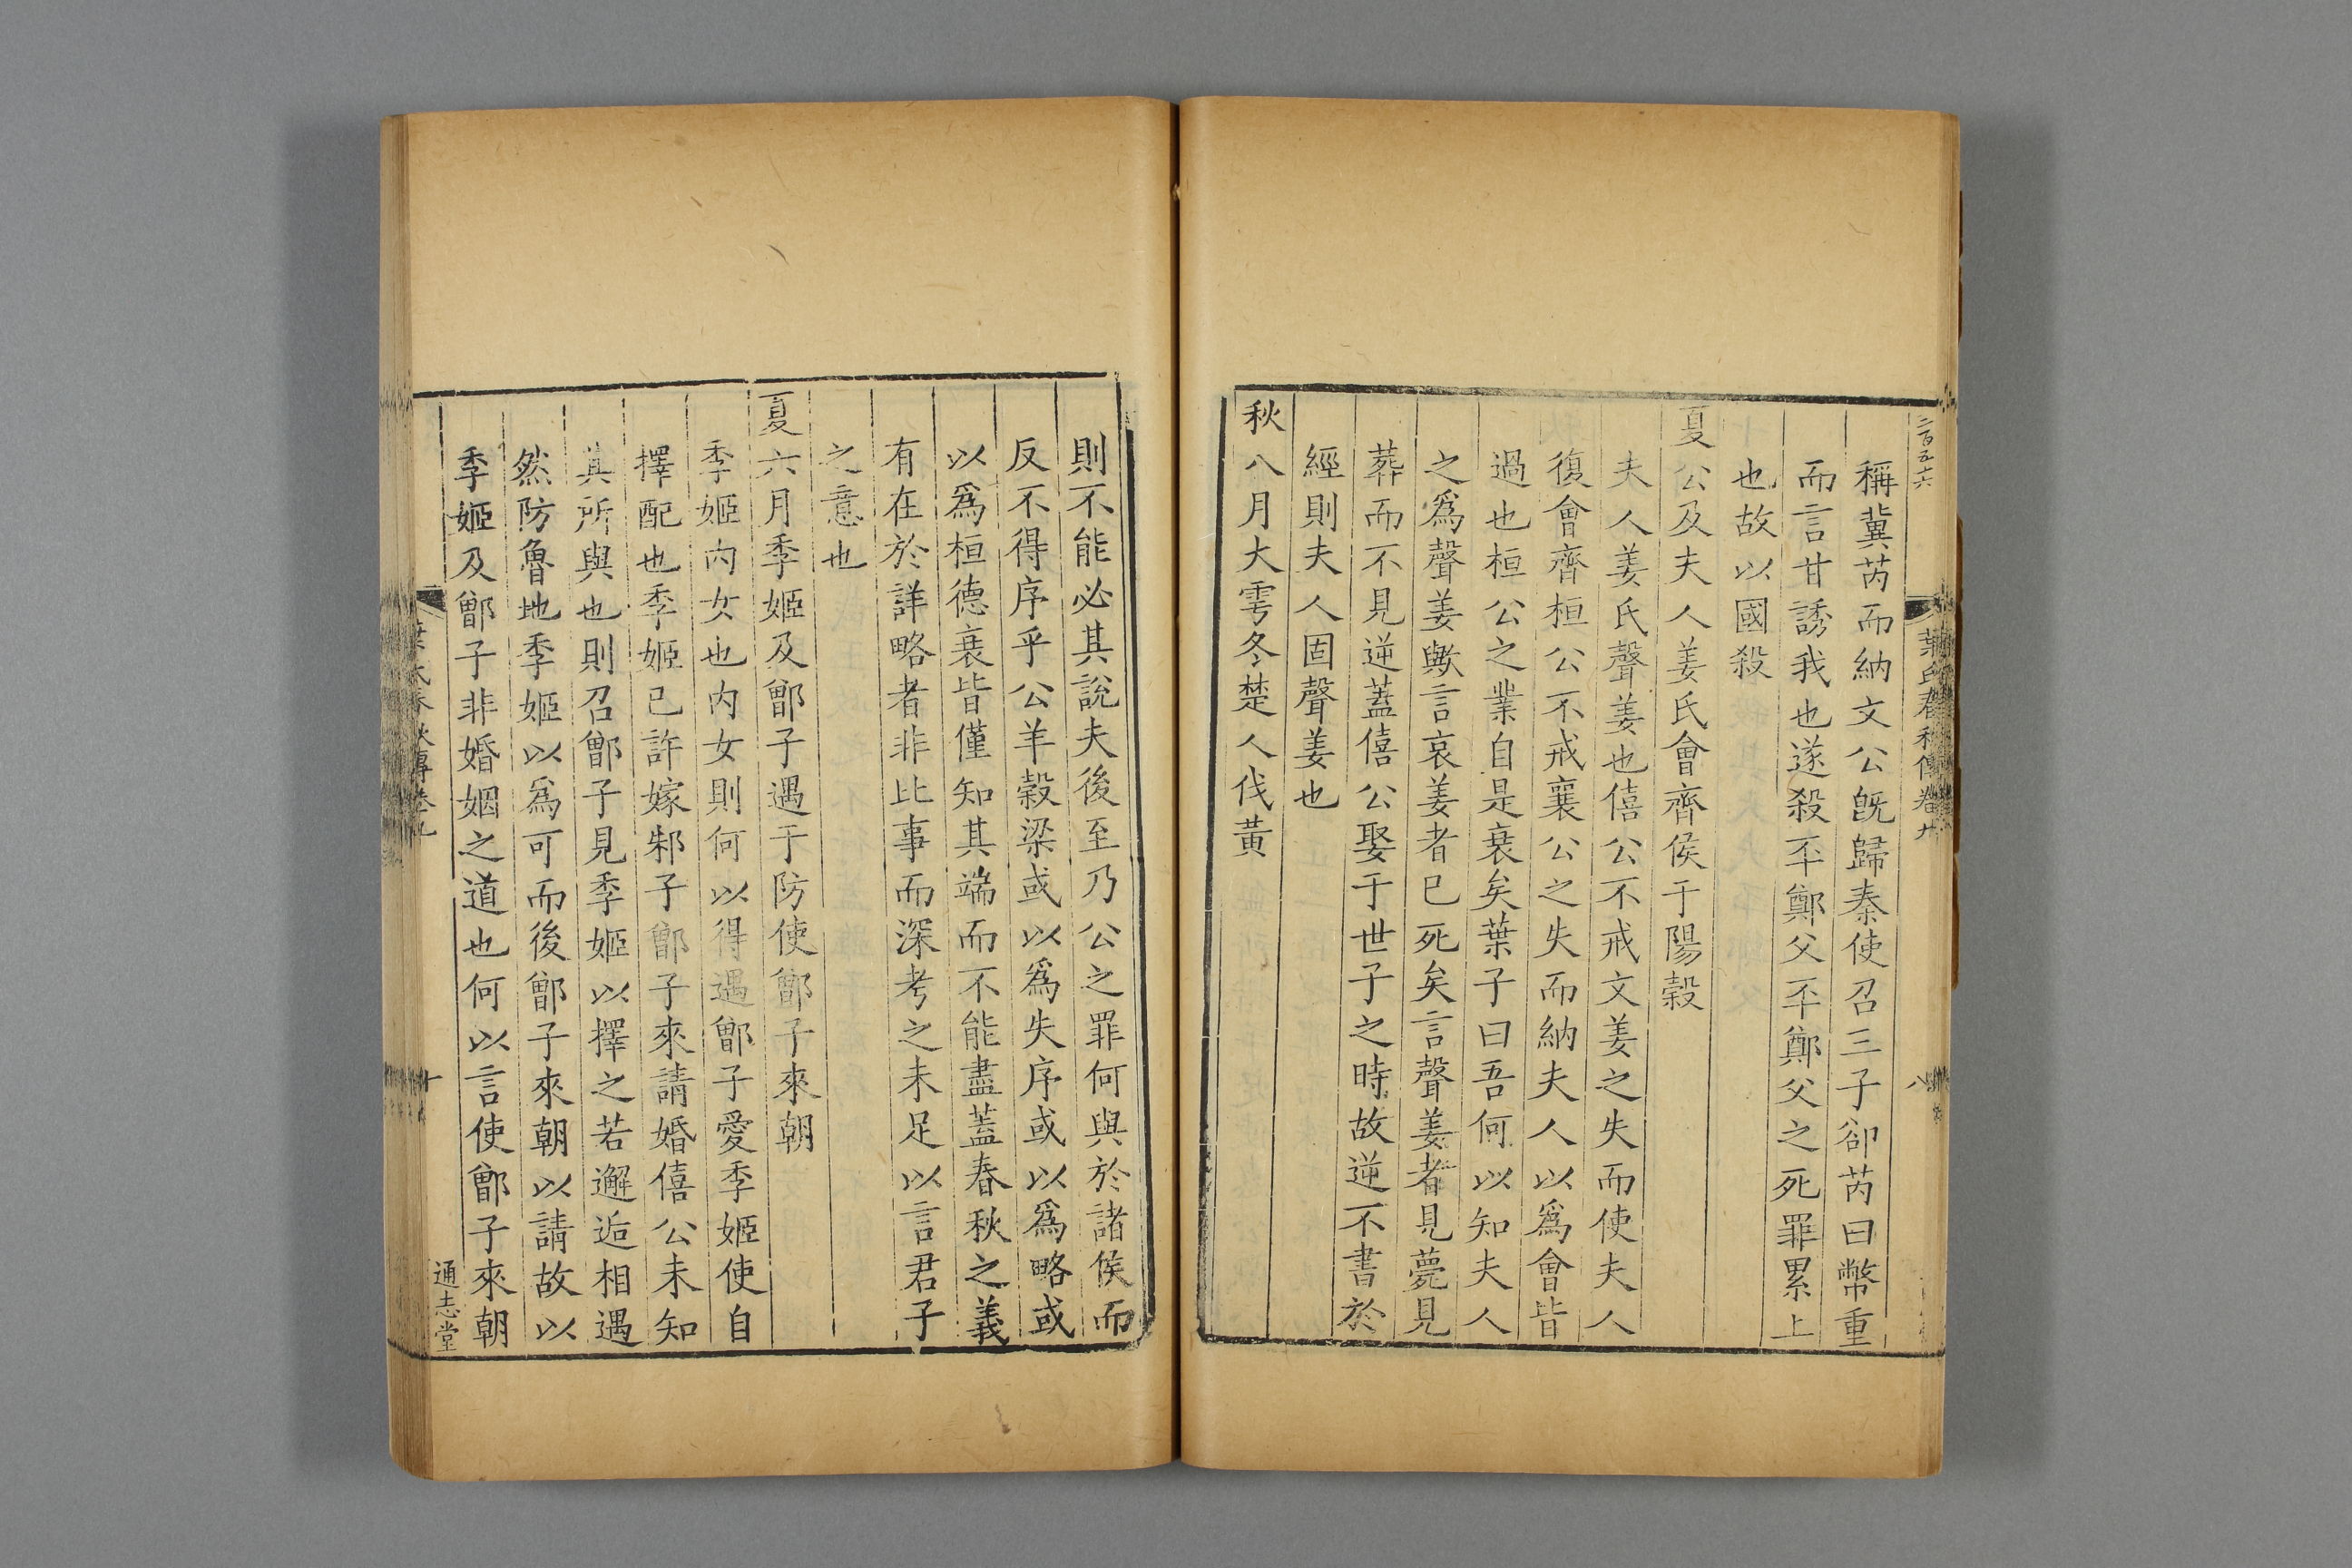 二百五十六
葉氏春秋傳卷九
八
稱冀芮而納文公旣歸秦使召三子卻芮曰幣重
而言甘誘我也遂殺㔻鄭父㔻鄭父之死罪累上
也故以國殺
夏公及夫人姜氏會齊侯于陽榖
夫人姜氏聲姜也僖公不戒文姜之失而使夫人
復會齊桓公不戒襄公之失而納夫人以爲會皆
過也桓公之業自是衰矣葉子曰吾何以知夫人
之爲聲姜歟言哀姜者已死矣言聲姜者見薨見
葬而不見逆蓋僖公娶于世子之時故逆不書於
經則夫人固聲姜也
秋八月大雩冬楚人伐黃
則不能必其說夫後至乃公之罪何與於諸侯而
反不得序乎公羊穀梁或以爲失序或以爲略或
以爲桓德衰皆僅知其端而不能盡蓋春秋之義
有在於詳略者非比事而深考之未足以言君子
之意也
夏六月季姬及鄫子遇于防使鄫子來朝
季姬内女也内女則何以得遇鄫子愛季姬使自
擇配也季姬已許嫁邾子鄫子來請婚僖公未知
其所與也則召鄫子見季姬以擇之若邂逅相遇
然防魯地季姬以爲可而後鄫子來朝以請故以
季姬及鄫子非婚姻之道也何以言使鄫子來朝
葉氏春秋傳卷九
十
通志堂